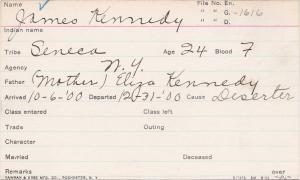 Name James Kennedy File No. En.
" " G. -1616
Indian name
Tribe Seneca Age 24 Blood F
Agency N.Y.
Father (Mother) Eliza Kennedy
Arrived 10-6-'00 Departed 12-31-'00 Cause Deserter
Class entered Class left
Trade Outing
Character
Married Deceased
Remarks over
YAWMAN & ERBE MFG. CO., ROCHESTER, N. Y.